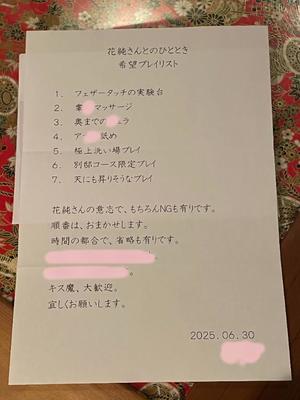 花純さんとのひととき
希望プレイリスト
1. フェザータッチの実験台
2. 睾 マッサージ
3. 奥までの ュラ
4. ア 舐め
5. 極上洗い場プレイ
6. 別邸コース限定プレイ
7. 天にも昇りそうなプレイ
花純さんの意志で、もちろんNGも有りです。
順番は、おまかせします。
時間の都合で、省略も有りです。
キス魔、大歓迎。
宜しくお願いします。
2025.06.30